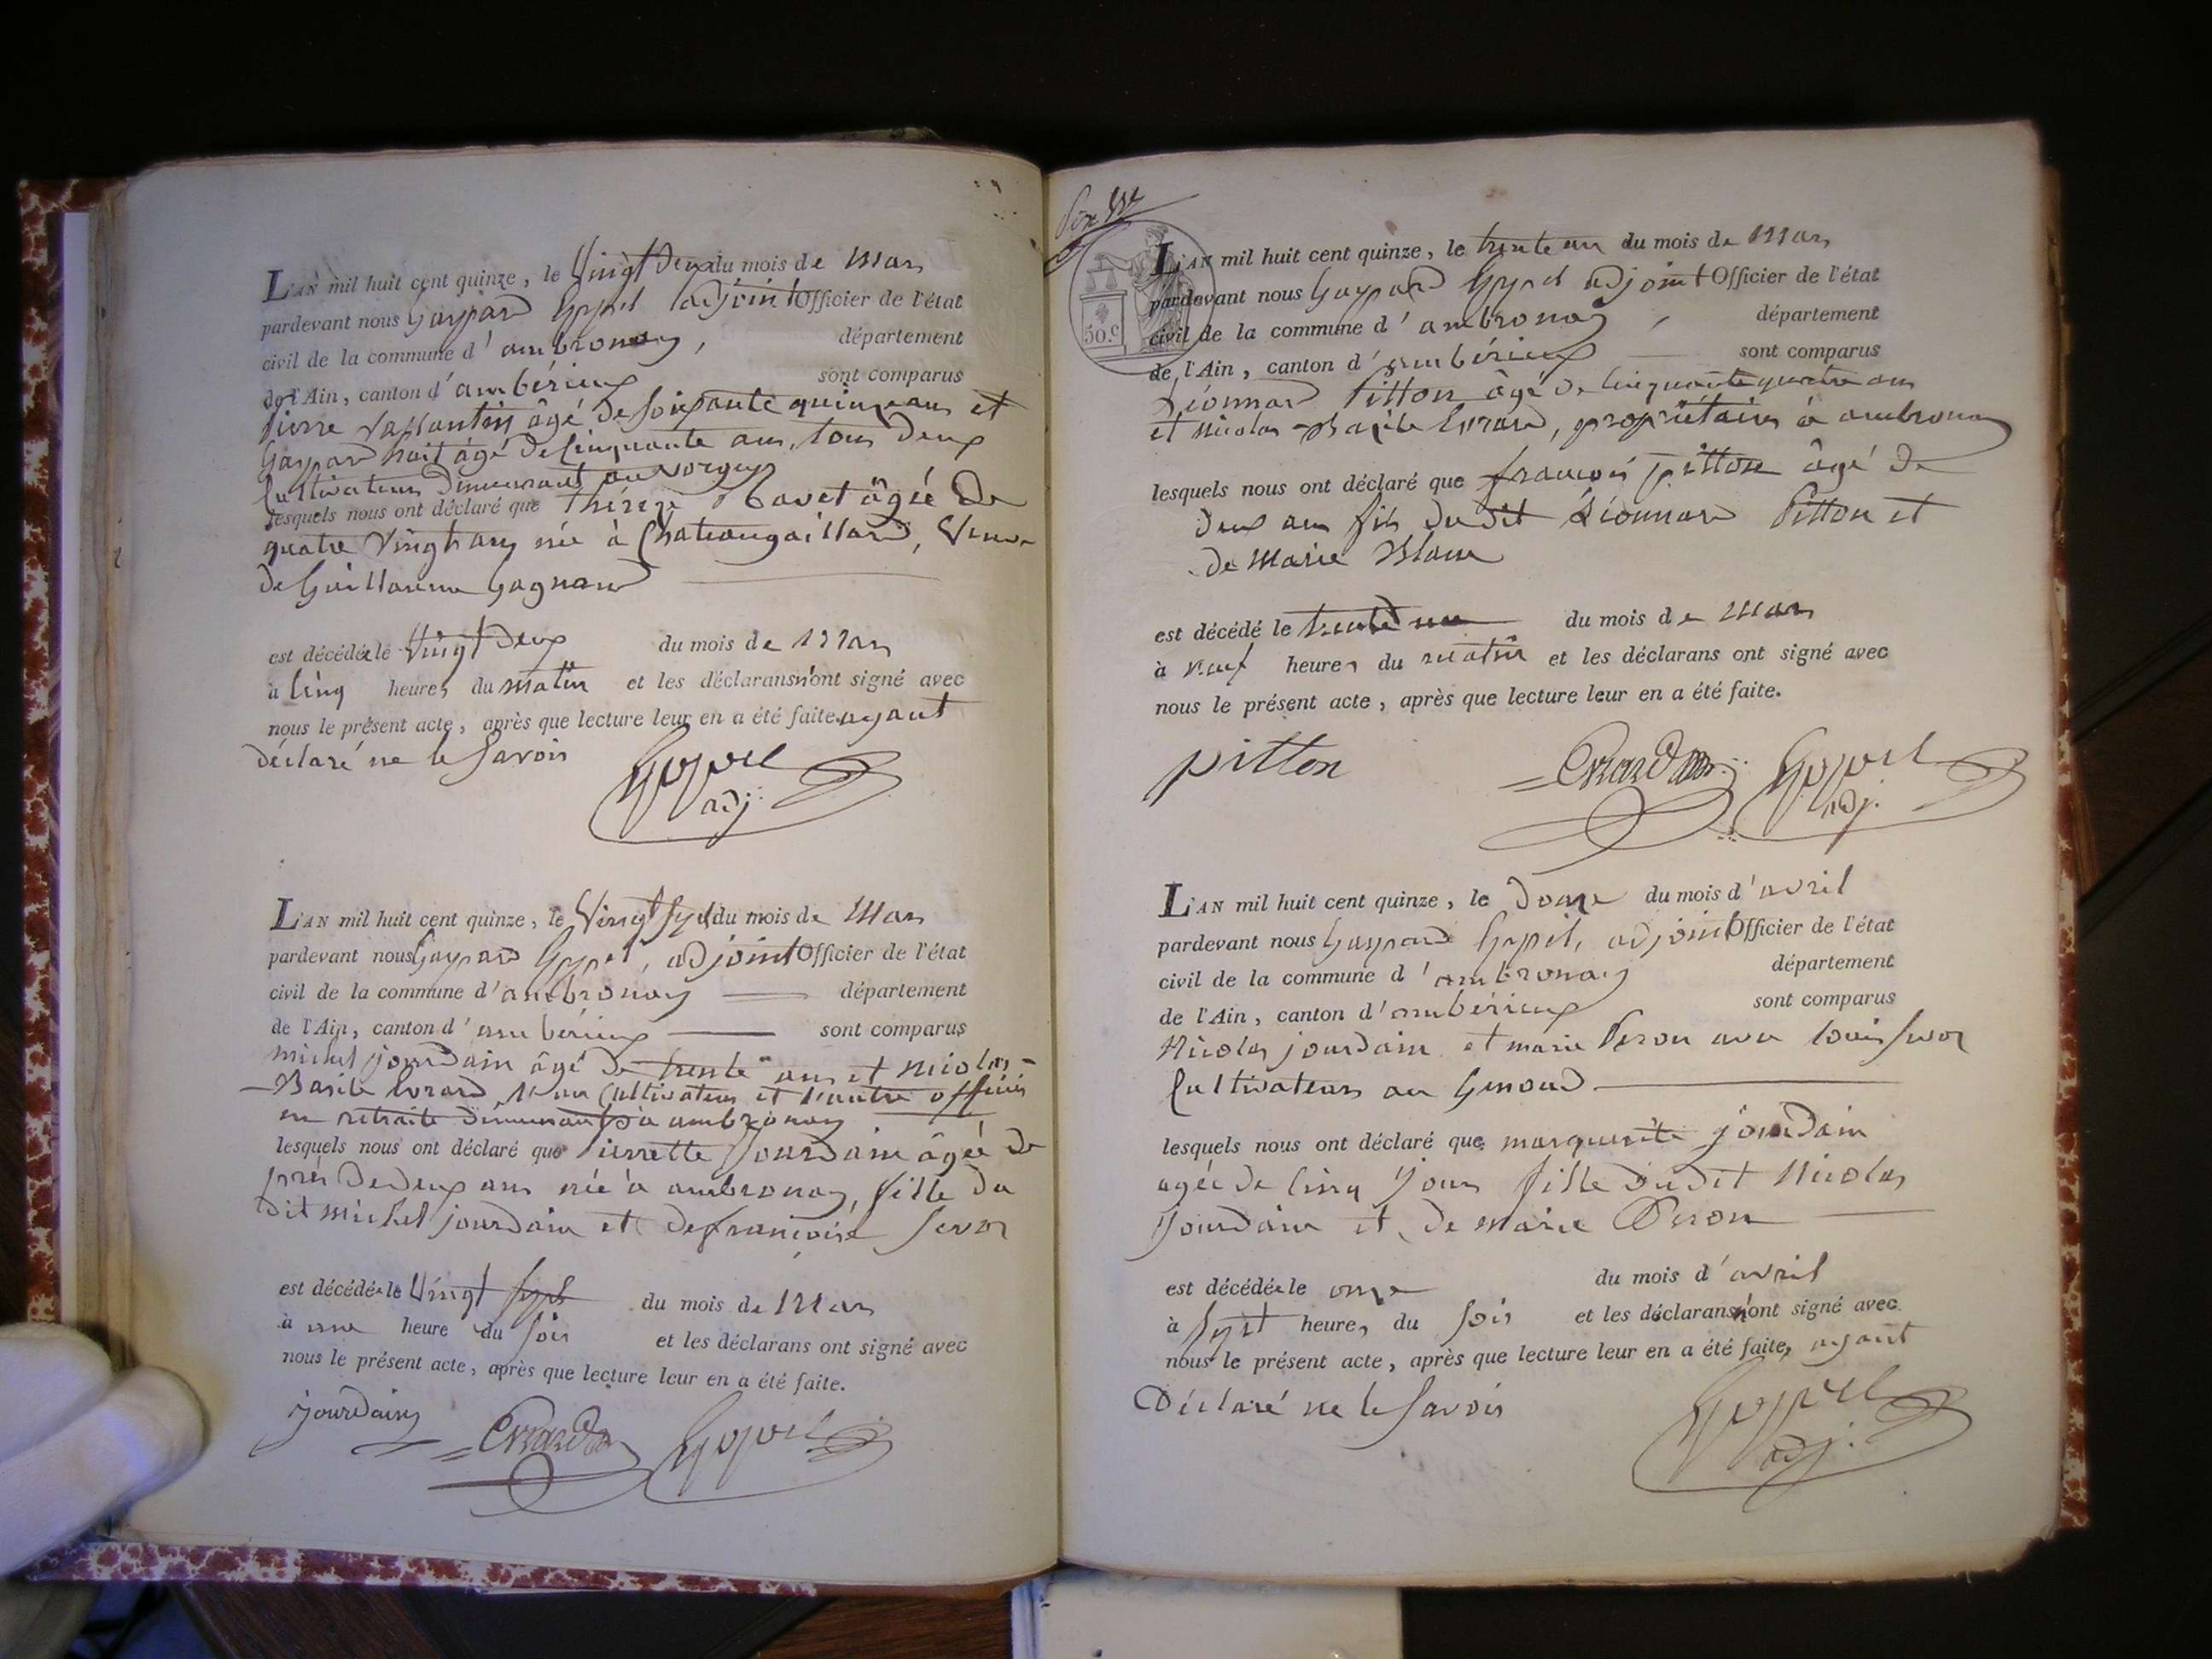 L'AN mil huit cent quinze, le Vingt Deux du mois de Mars
pardevant nous Gaspard Goppel adjoint Officier de l'état
civil de la commune d'ambronay, département
de l'Ain, canton d'ambérieux sont comparus
Pierre Vallantin âgé de soixante quinze ans et
Gaspard âgé de Cinquante ans, tous deux
Cultivateurs demeurant au
lesquels nous ont déclaré que thérèze Bavet âgée de
quatre Vingts ans née à Chateaugaillard, Veuve
de Guillaume Gagnard
est décédée le Vingt Deux du mois de Mars
à Cinq heures du matin et les déclarans n'ont signé avec
nous le présent acte, après que lecture leur en a été faite ayant
déclaré ne le Savoir
Goppel
adj.
L'AN mil huit cent quinze, le Vingt Sept du mois de Mars
pardevant nous Gaspard Goppel, adjoint Officier de l'état
civil de la commune d'ambronay département
de l'Ain, canton d'ambérieux sont comparus
Michel jourdain âgé de trente ans et Nicolas-
Bazile Evrard, l'un Cultivateur et l'autre officier
en retraite demeurants à ambronay
lesquels nous ont déclaré que Pierrette Jourdain âgée de
près de deux ans née à ambronay, fille du
dit Michel jourdain et de françoise Servoz
est décédée le Vingt Sept du mois de Mars
à une heure du Soir et les déclarans ont signé avec
nous le présent acte, après que lecture leur en a été faite.
jourdain Evrard Goppel
50.c
L'AN mil huit cent quinze, le trente un du mois de Mars
pardevant nous Gaspard Goppel adjoint Officier de l'état
civil de la commune d'ambronay, département
de l'Ain, canton d'ambérieux sont comparus
Léonnard Pitton âgé de Cinquante quatre ans
et Nicolas-Bazile Evrard, propriétaires à ambronay
lesquels nous ont déclaré que françois pitton âgé de
deux ans fils du dit Léonnard Pitton et
de Marie Blanc
est décédé le trente un du mois de Mars
à neuf heures du matin et les déclarans ont signé avec
nous le présent acte, après que lecture leur en a été faite.
pitton Evrard Goppel
adj.
L'AN mil huit cent quinze, le Douze du mois d'avril
pardevant nous Gaspard Goppel, adjoint Officier de l'état
civil de la commune d'ambronay département
de l'Ain, canton d'ambérieux sont comparus
Nicolas jourdain et marie Peron avec Louis Servoz
Cultivateurs au Genoud
lesquels nous ont déclaré que marguerite jourdain
agée de Cinq Jours fille du dit Nicolas
Jourdain et de marie Peron
est décédée le onze du mois d'avril
à Sept heures du Soir et les déclarans n'ont signé avec
nous le présent acte, après que lecture leur en a été faite, ayant
Déclaré ne le Savoir
Goppel
adj.